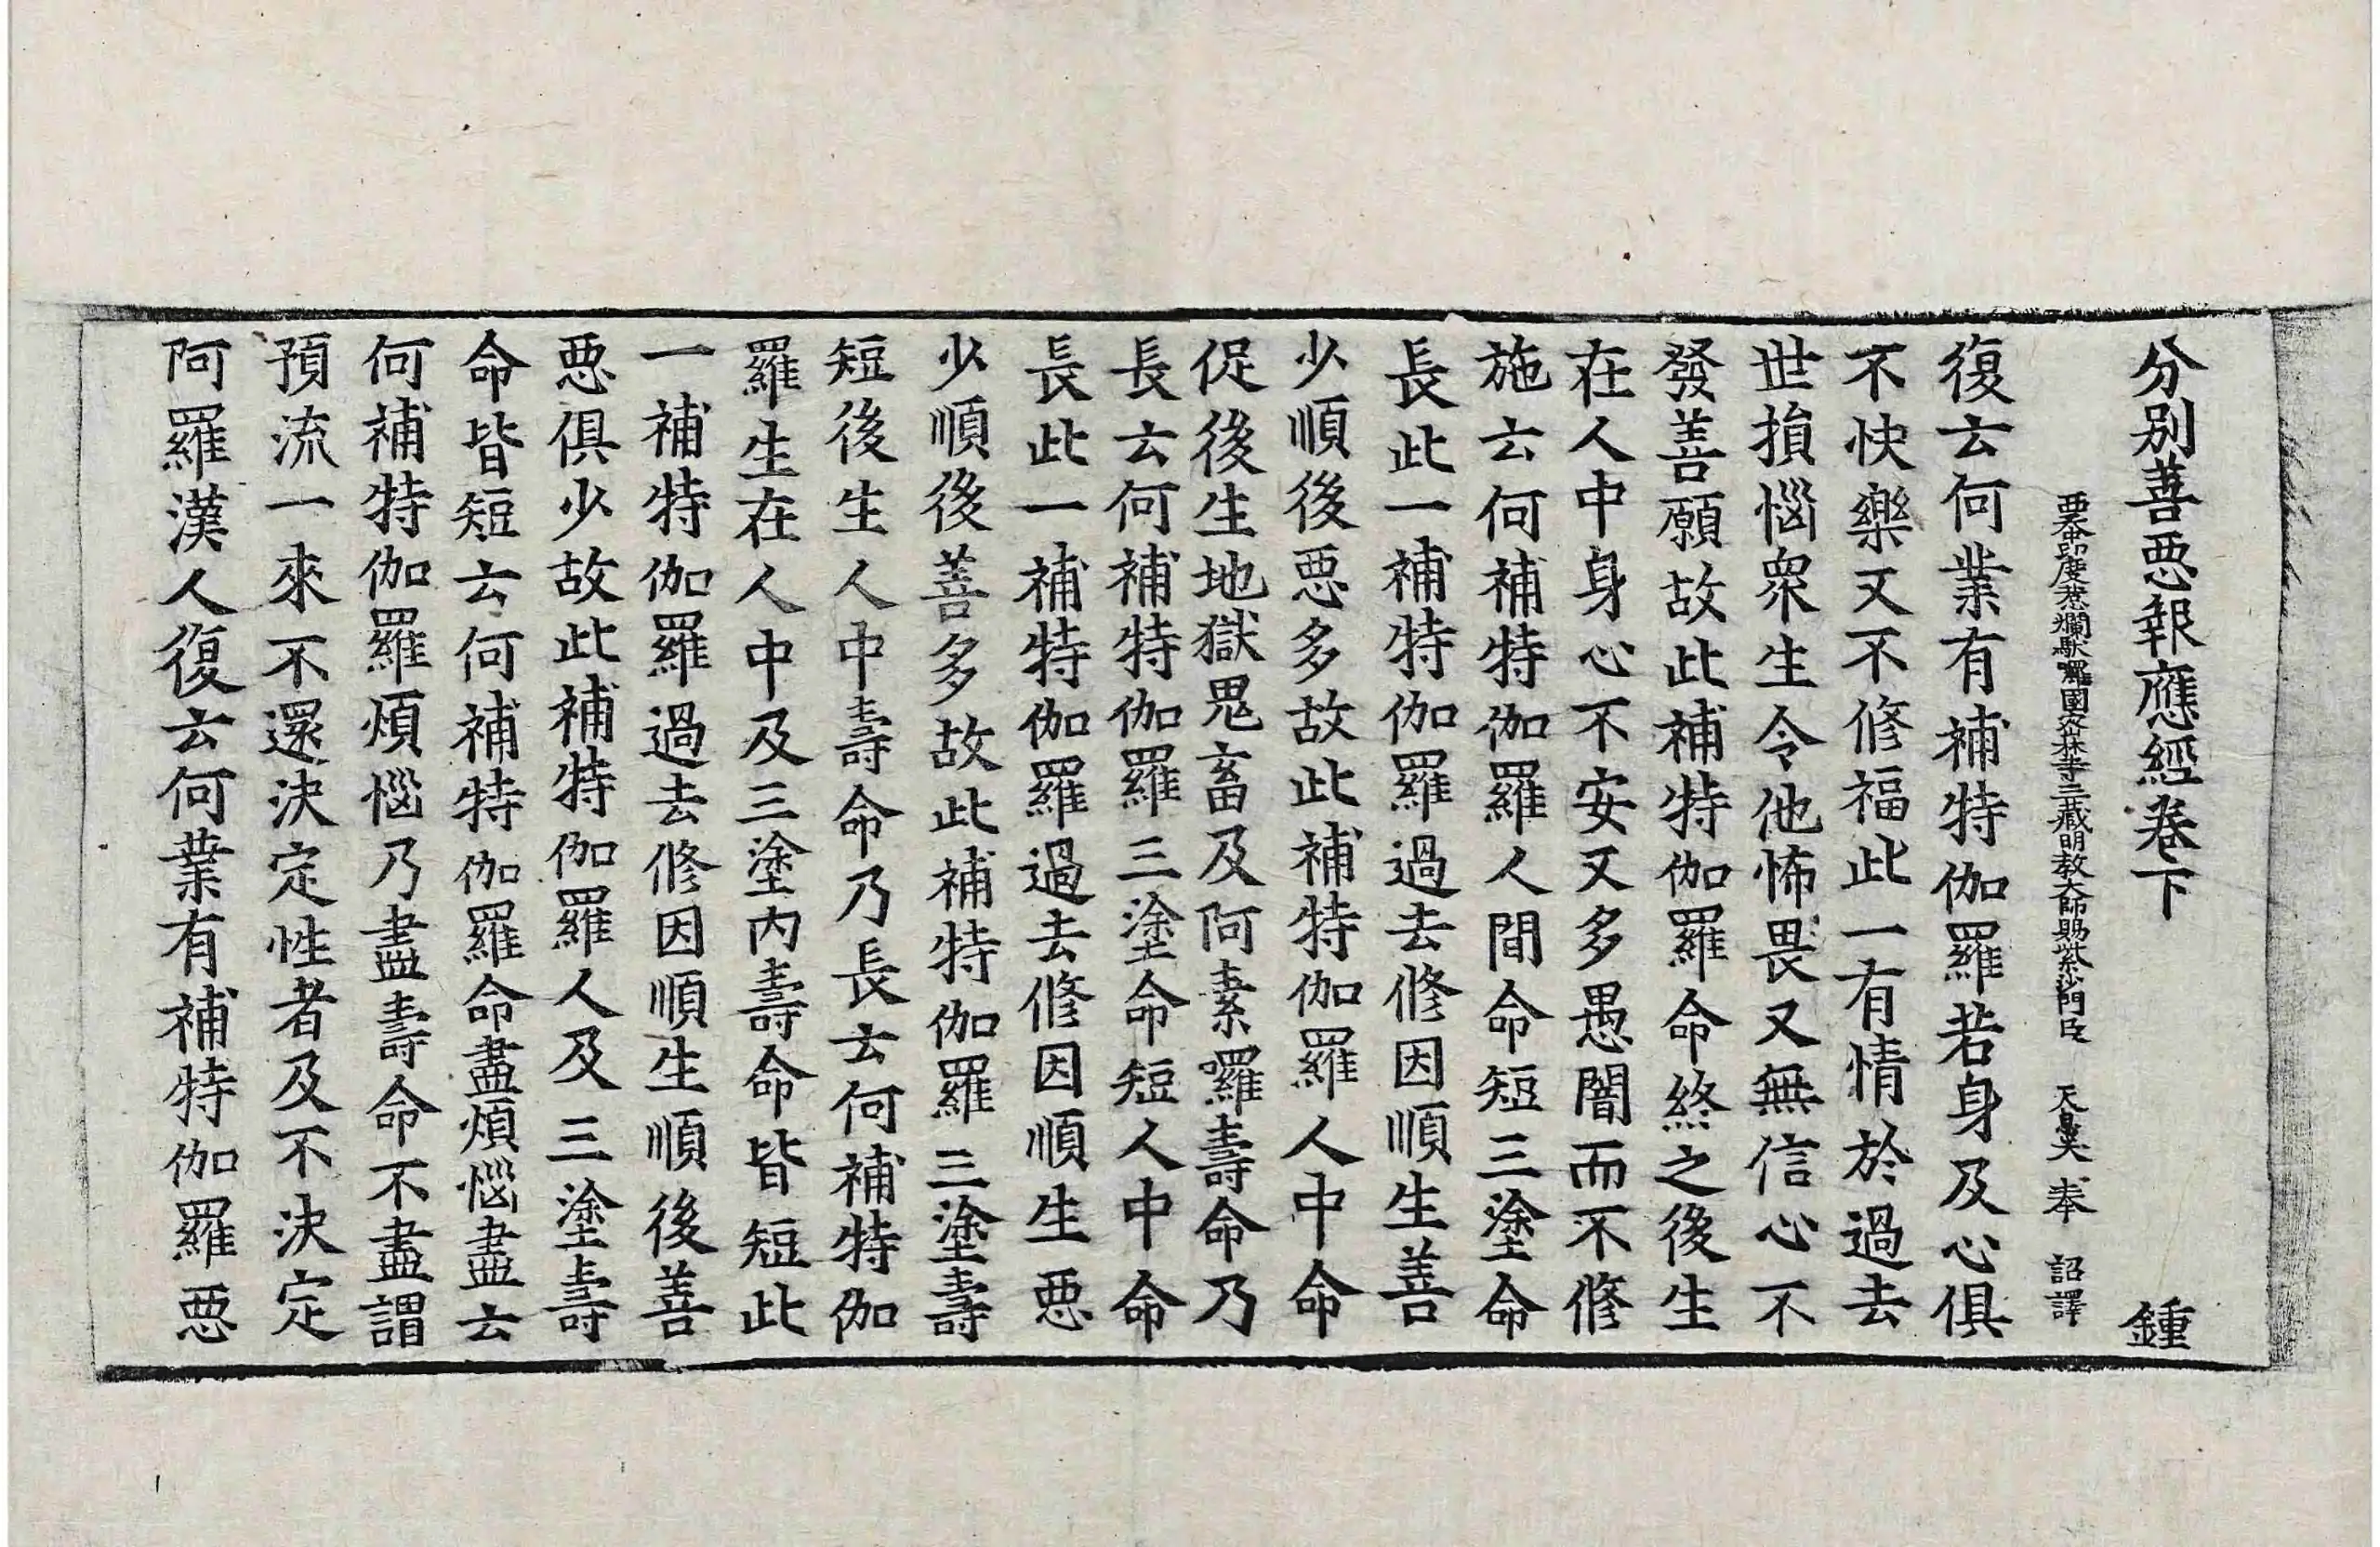 分別善惡報應經卷下 鍾
西天中印度惹爛馱囉國密林寺三藏明教大師賜紫沙門臣 天息災 奉 詔譯
復云何業有補特伽羅若身及心俱
不快樂又不修福此一有情於過去
世損惱衆生令他怖畏又無信心不
發善願故此補特伽羅命終之後生
在人中身心不安又多愚闇而不修
施云何補特伽羅人間命短三塗命
長此一補特伽羅過去修因順生善
少順後惡多故此補特伽羅人中命
促後生地獄鬼畜及阿素囉壽命乃
長云何補特伽羅三塗命短人中命
長此一補特伽羅過去修因順生惡
少順後善多故此補特伽羅三塗壽
短後生人中壽命乃長云何補特伽
羅生在人中及三塗內壽命皆短此
一補特伽羅過去修因順生順後善
惡俱少故此補特伽羅人及三塗壽
命皆短云何補特伽羅命盡煩惱盡云
何補特伽羅煩惱乃盡壽命不盡謂
預流一來不還決定性者及不決定
阿羅漢人復云何業有補特伽羅惡